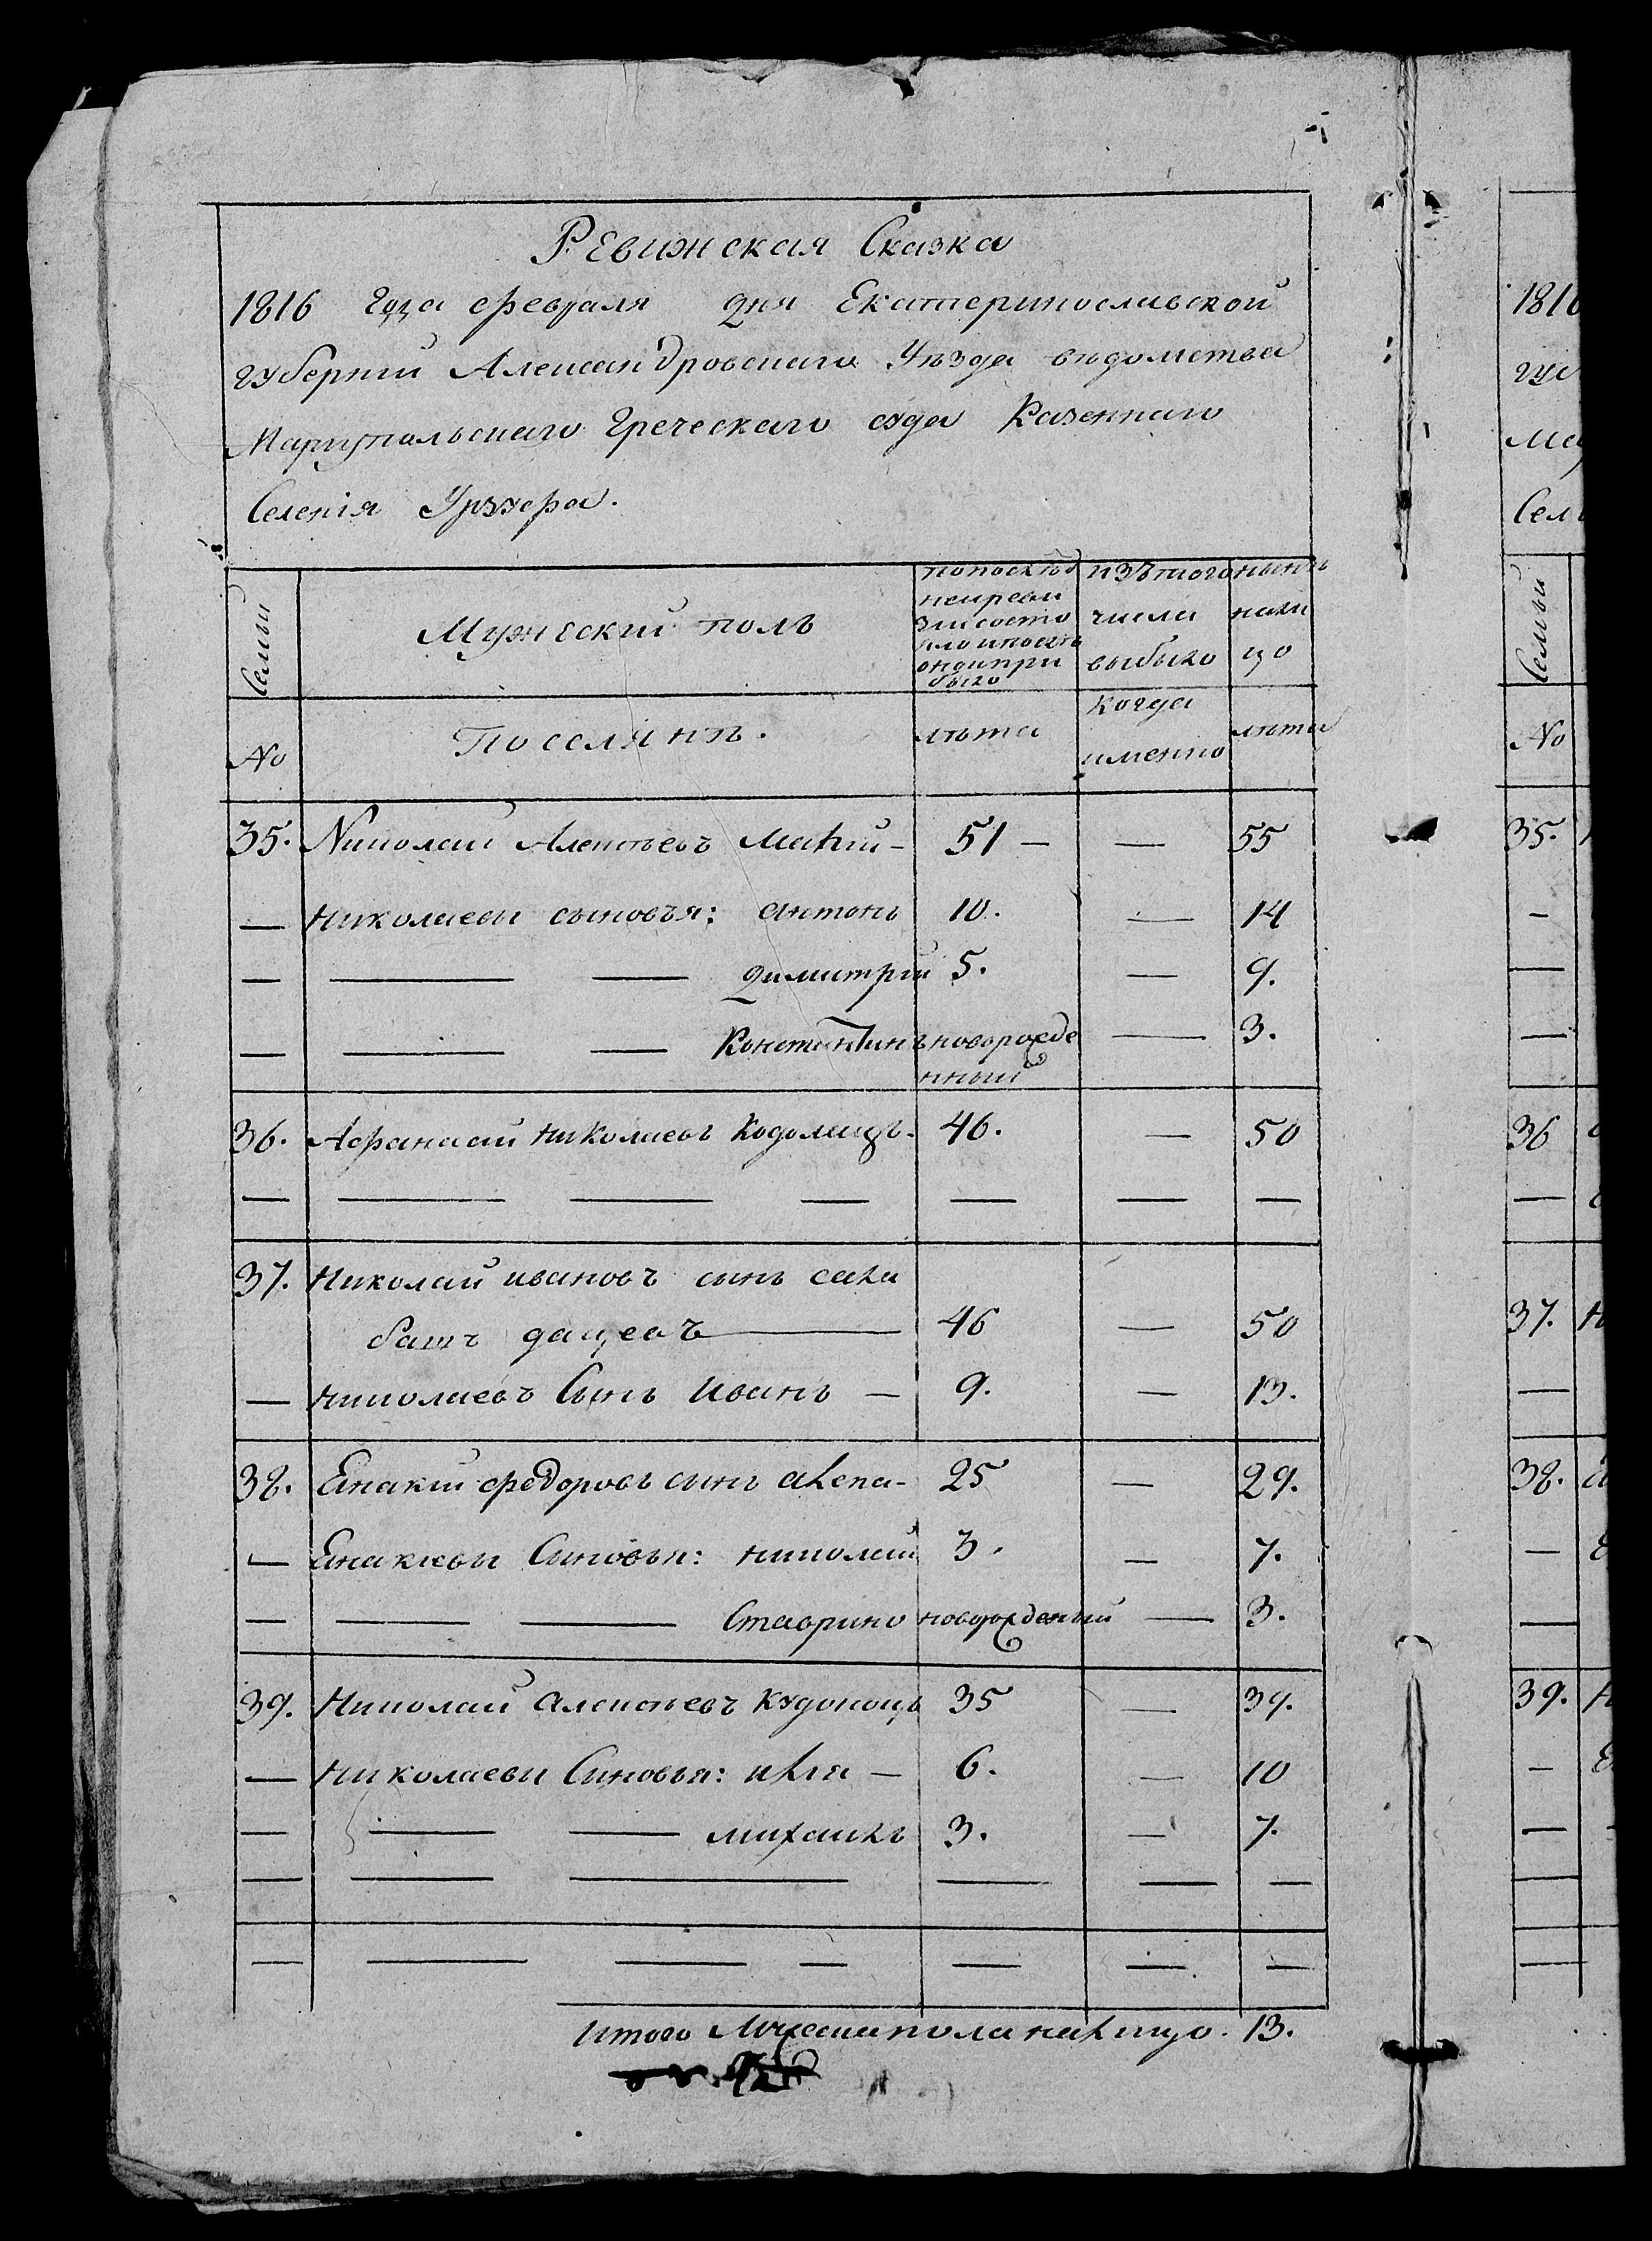 Ревижская Сказка
1816 года февраля дня Екатеринославской
губерний Александровскаго Уѣзда вѣдомства
Мариупольскаго Греческаго суда Казеннаго
Селенія Урзуфа.
Семьи
Мужеский полъ
попослѣд
ней реви
зии состо
яло и послѣ
онои при
было
изътого
числа
выбыло
нынѣ
нали
цо
№
Поселянъ.
лѣта
когда
именно
лѣта
35. Николай Алексѣевъ — 51 — — 55
— Николаевы сыновъя: антонъ 10. — 14
— — — димитрий 5. — 9.
— — — Константинъ новорожде — 3.
нный
36. Афанасий Николаевъ 46. — 50
— — — — — — —
37. Николай ивановъ сынъ сала
башъ дацевъ — 46 — 50
— николаевъ Сынъ Иванъ — 9. — 13.
38. Енакии федоровъ сынъ алепа — 25 — 29.
— Енакиевы Сыновья: николай 3. — 7.
— — — Ставрино новорожденый — 3.
39. Николай алексѣевъ 35 — 39.
— Николаевы Синовья: илия — 6. — 10
— — — михаилъ 3. — 7.
— — — — — —
— — — — — — —
Итого Мужеска пола налицо. 13.
1816
губ
Ма
Сел
Семьи
№
35.
—
—
—
36
—
37.
—
38.
—
—
39.
—
—
—
—